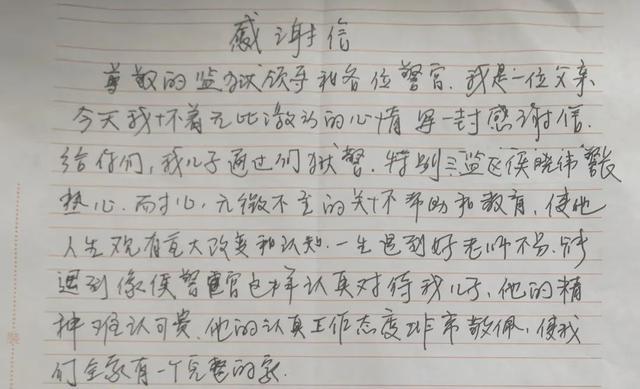 感谢信
尊敬的监狱领导和各位警官．我是一位父亲
今天我怀着无比激动的心情 写一封感谢信．
给你们，我儿子通过们狱警．特别三监区侯晓伟警长
热心．耐心，无微不至的关怀帮助和教育，使他
人生观有重大改变和认知．一生遇到好老师不易．能
遇到像侯警官这样认真对待我儿子，他的精
神难认可贵．他的认真工作态度非常敬佩，使我
们全家有一个完整的家．
装